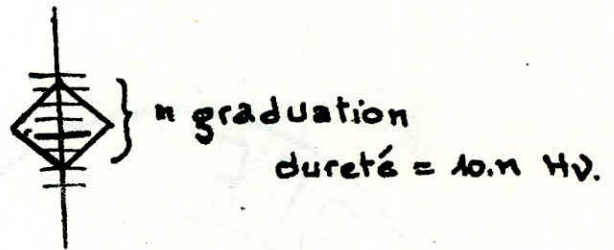 n graduation
dureté = 10.n Hv.